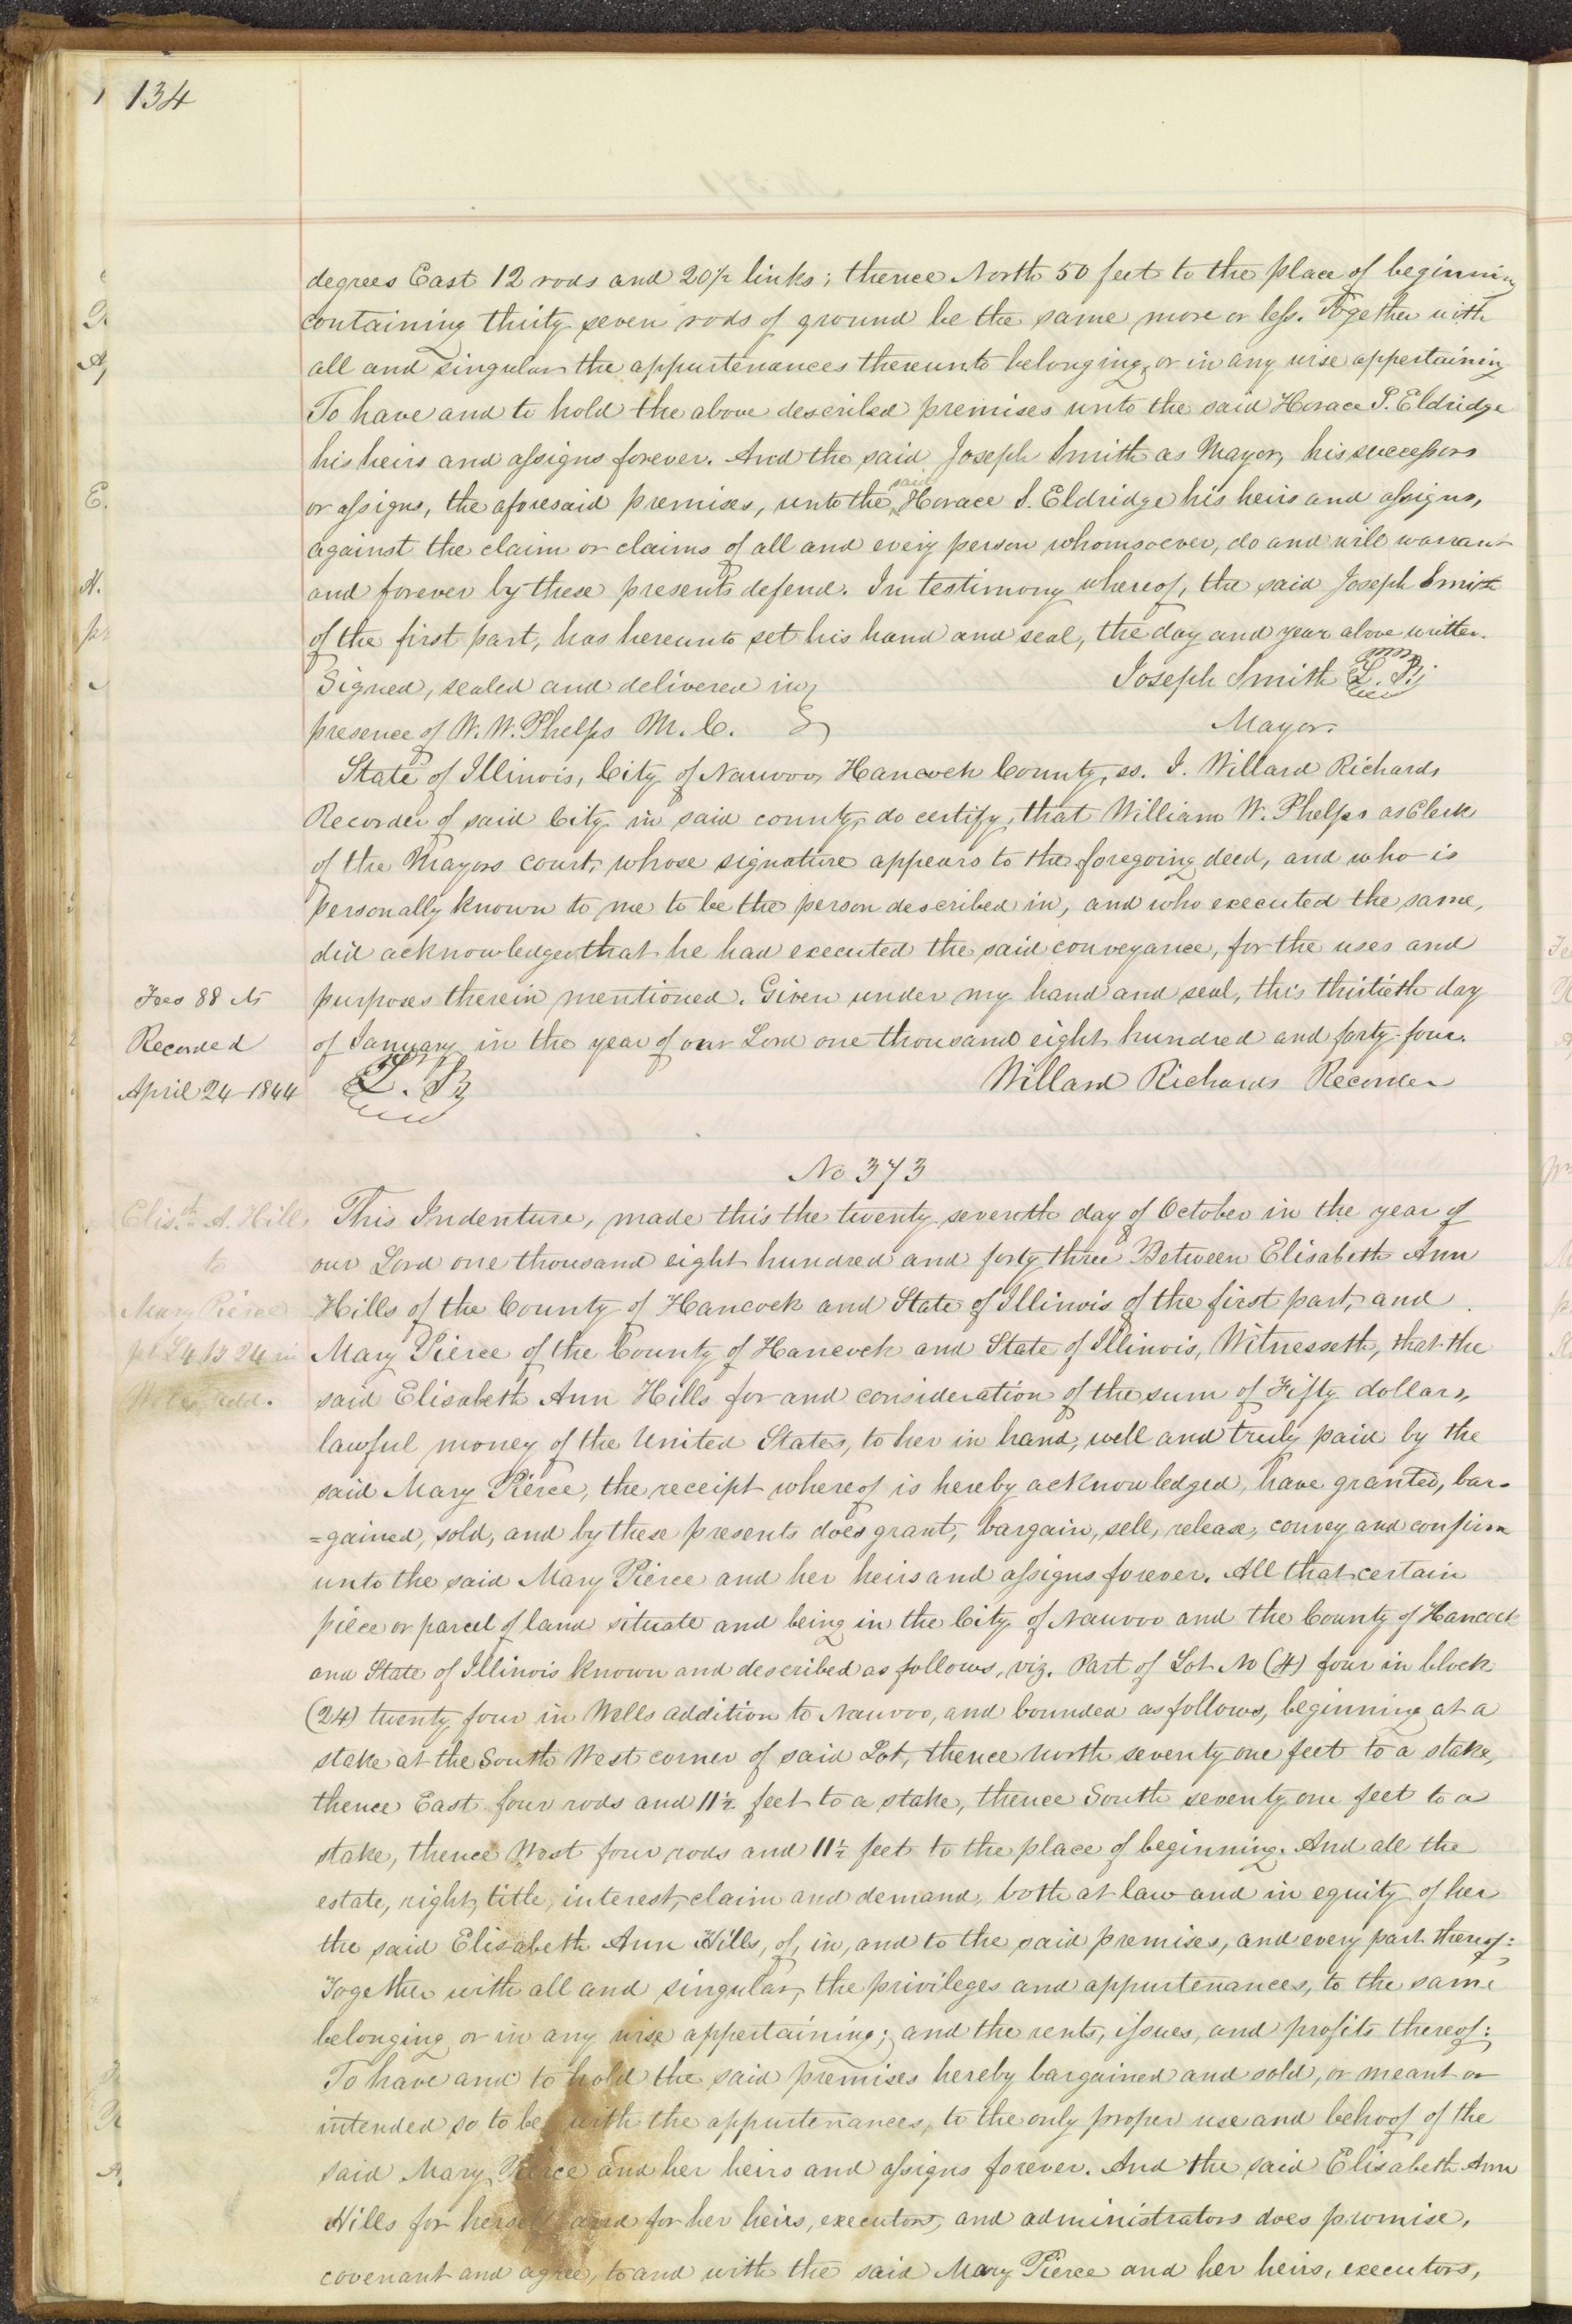 134
degrees East 12 rods and 20½ links; thence North 50 feet to the place of beginning
containing thirty seven rods of ground be the same more or less. Together with
all and singular the appurtenances thereunto belonging, or in any wise appertaining
To have and to hold the above described premises unto the said Horace S. Eldridge
his heirs and assigns forever. And the said Joseph Smith as Mayor, his successors
or assigns, the aforesaid premises, unto the said Horace S. Eldridge his heirs and assigns,
against the claim or claims of all and every person whomsoever, do and will warrant
and forever by these presents defend. In testimony whereof, the said Joseph Smith
of the first part, has hereunto set his hand and seal, the day and year above written.
Signed, sealed and delivered in Joseph Smith L.S.
presence of W. W. Phelps M. C. Mayor.
State of Illinois, City of Nauvoo, Hancock County, ss. I. Willard Richards
Recorder of said City in said county, do certify, that William W. Phelps as Clerk
of the Mayors court, whose signature appears to the foregoing deed, and who is
personally known to me to be the person described in, and who executed the same,
did acknowledge that he had executed the said conveyance, for the uses and
Fees 88 cts purposes therein mentioned. Given under my hand and seal, this thirtieth day
Recorded of January in the year of our Lord one thousand eight hundred and forty-four.
April 24-1844 L.S. Willard Richards Recorder
No 373
Elisth A. Hills This Indenture, made this the twenty seventh day of October in the year of
to our Lord one thousand eight hundred and forty three Between Elisabeth Ann
Mary Pierce Hills of the County of Hancock and State of Illinois of the first part, and
pt L4 B 24 in Mary Pierce of the County of Hancock and State of Illinois, Witnesseth, that the
Wells add. said Elisabeth Ann Hills for and consideration of the sum of Fifty dollars,
lawful money of the United States, to her in hand, well and truly paid by the
said Mary Pierce, the receipt whereof is hereby acknowledged, have granted, bar-
=gained, sold, and by these presents does grant, bargain, sell, release, convey and confirm
unto the said Mary Pierce and her heirs and assigns forever. All that certain
piece or parcel of land situate and being in the City of Nauvoo and the County of Hancock
and State of Illinois known and described as follows, viz. Part of Lot No (4) four in block
(24) twenty four in Wells addition to Nauvoo, and bounded as follows, beginning at a
stake at the South West corner of said Lot, thence North seventy one feet to a stake,
thence East four rods and 11½ feet to a stake, thence South seventy one feet to a
stake, thence West four rods and 11½ feet to the place of beginning. And all the
estate, right, title, interest, claim and demand, both at law and in equity of her
the said Elisabeth Ann Hills, of, in, and to the said premises, and every part thereof:
Together with all and singular, the privileges and appurtenances, to the same
belonging or in any wise appertaining; and the rents, issues, and profits thereof:
To have and to hold the said premises hereby bargained and sold, or meant or
intended so to be with the appurtenances, to the only proper use and behoof of the
said Mary Pierce and her heirs and assigns forever. And the said Elisabeth Ann
Hills for herself and for her heirs, executors, and administrators does promise,
covenant and agree, to and with the said Mary Pierce and her heirs, executors,